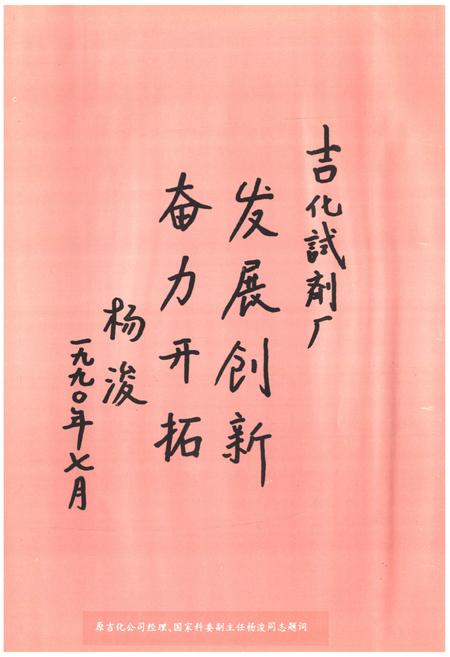 吉化試剤厂
发展创新
奋力开拓
杨浚
一九九〇年七月
原吉化公司经理、国家科委副主任杨浚同志题词